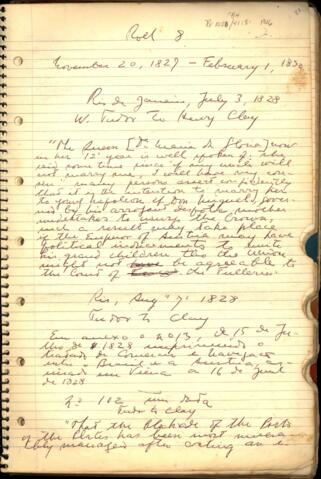 Roll 8
November 20, 1827 - February 1, 1830
Rio de Janeiro, July 3, 1828
W. Tudor to Henry Clay
"The Queen [Da. Maria da Gloria] now
in her 12 year is well spoken of: she
said some time since if my uncle will
not marry me, I will have my con-
vent: many persons assert confidently
that it is the intention to marry her
to young Napoleon if Don Miguel, gover-
ned by his arrogant mother
undertakes to usurp the Crown,
such a result may take place
if the Emperor of Austria may have
political inducements to unite
his grand children tho the union
might not be agreeable to
the Court of the Tulleries.
Rio, Aug 7: 1828
Tudor to Clay
Em anexo o 2013, de 15 de Ju-
lho de 1828 imprimindo o
tratado de Comercio e navegação
entre Brasil e a Austria, as-
sinado em Viena a 16 de Junh
de 1828
No. 102 sem data
Tudor to Clay
"That the Blockade of the Ports
of the Plate has been most misera-
bly managed after costing an